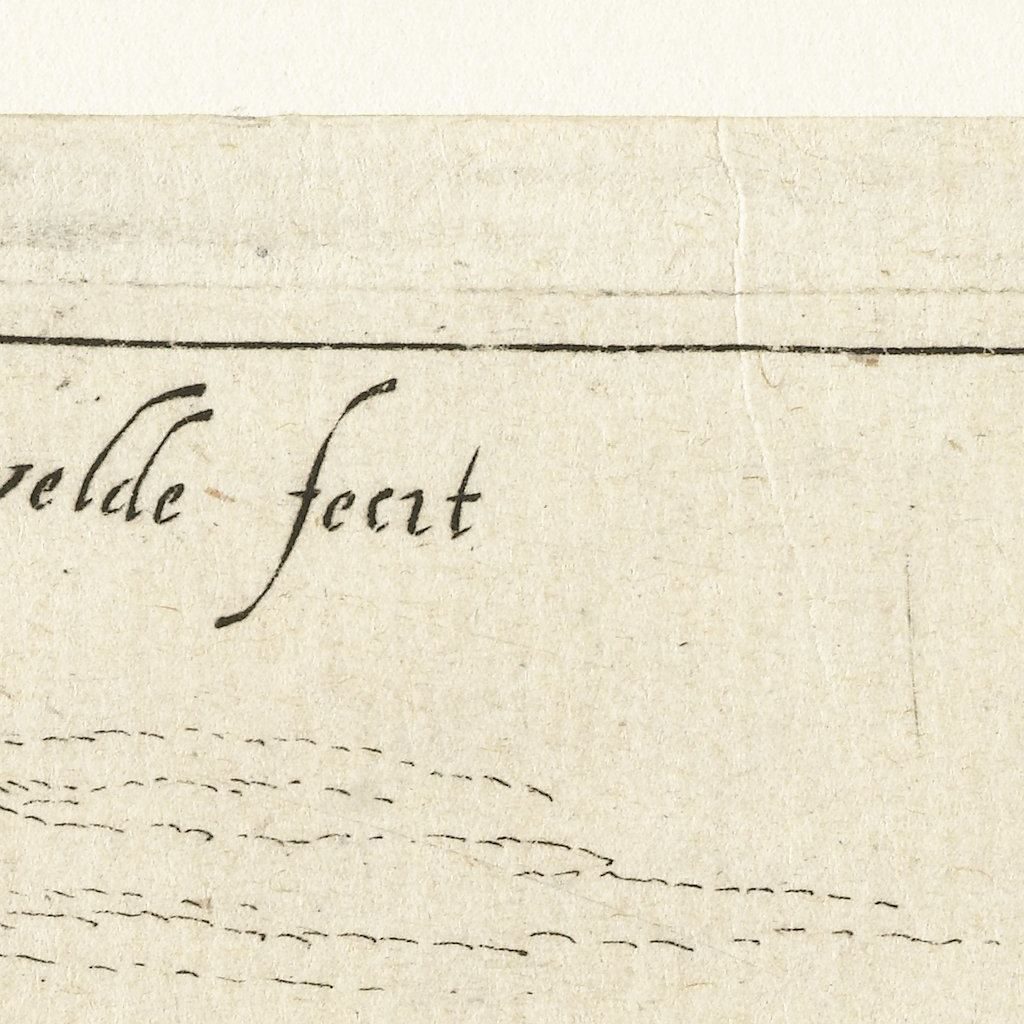 velde fecit